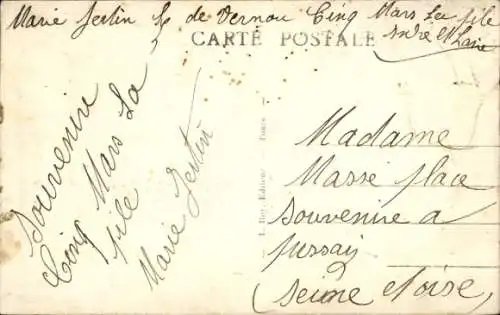 Marie Sertin de Vernou Cinq Mars La pile
Indre et Loire
CARTE POSTALE
Souvenir
Cinq Mars La
pile
Marie Sertin
Madame
Masse place
souvenire a
Jussay
(Seine et oise)